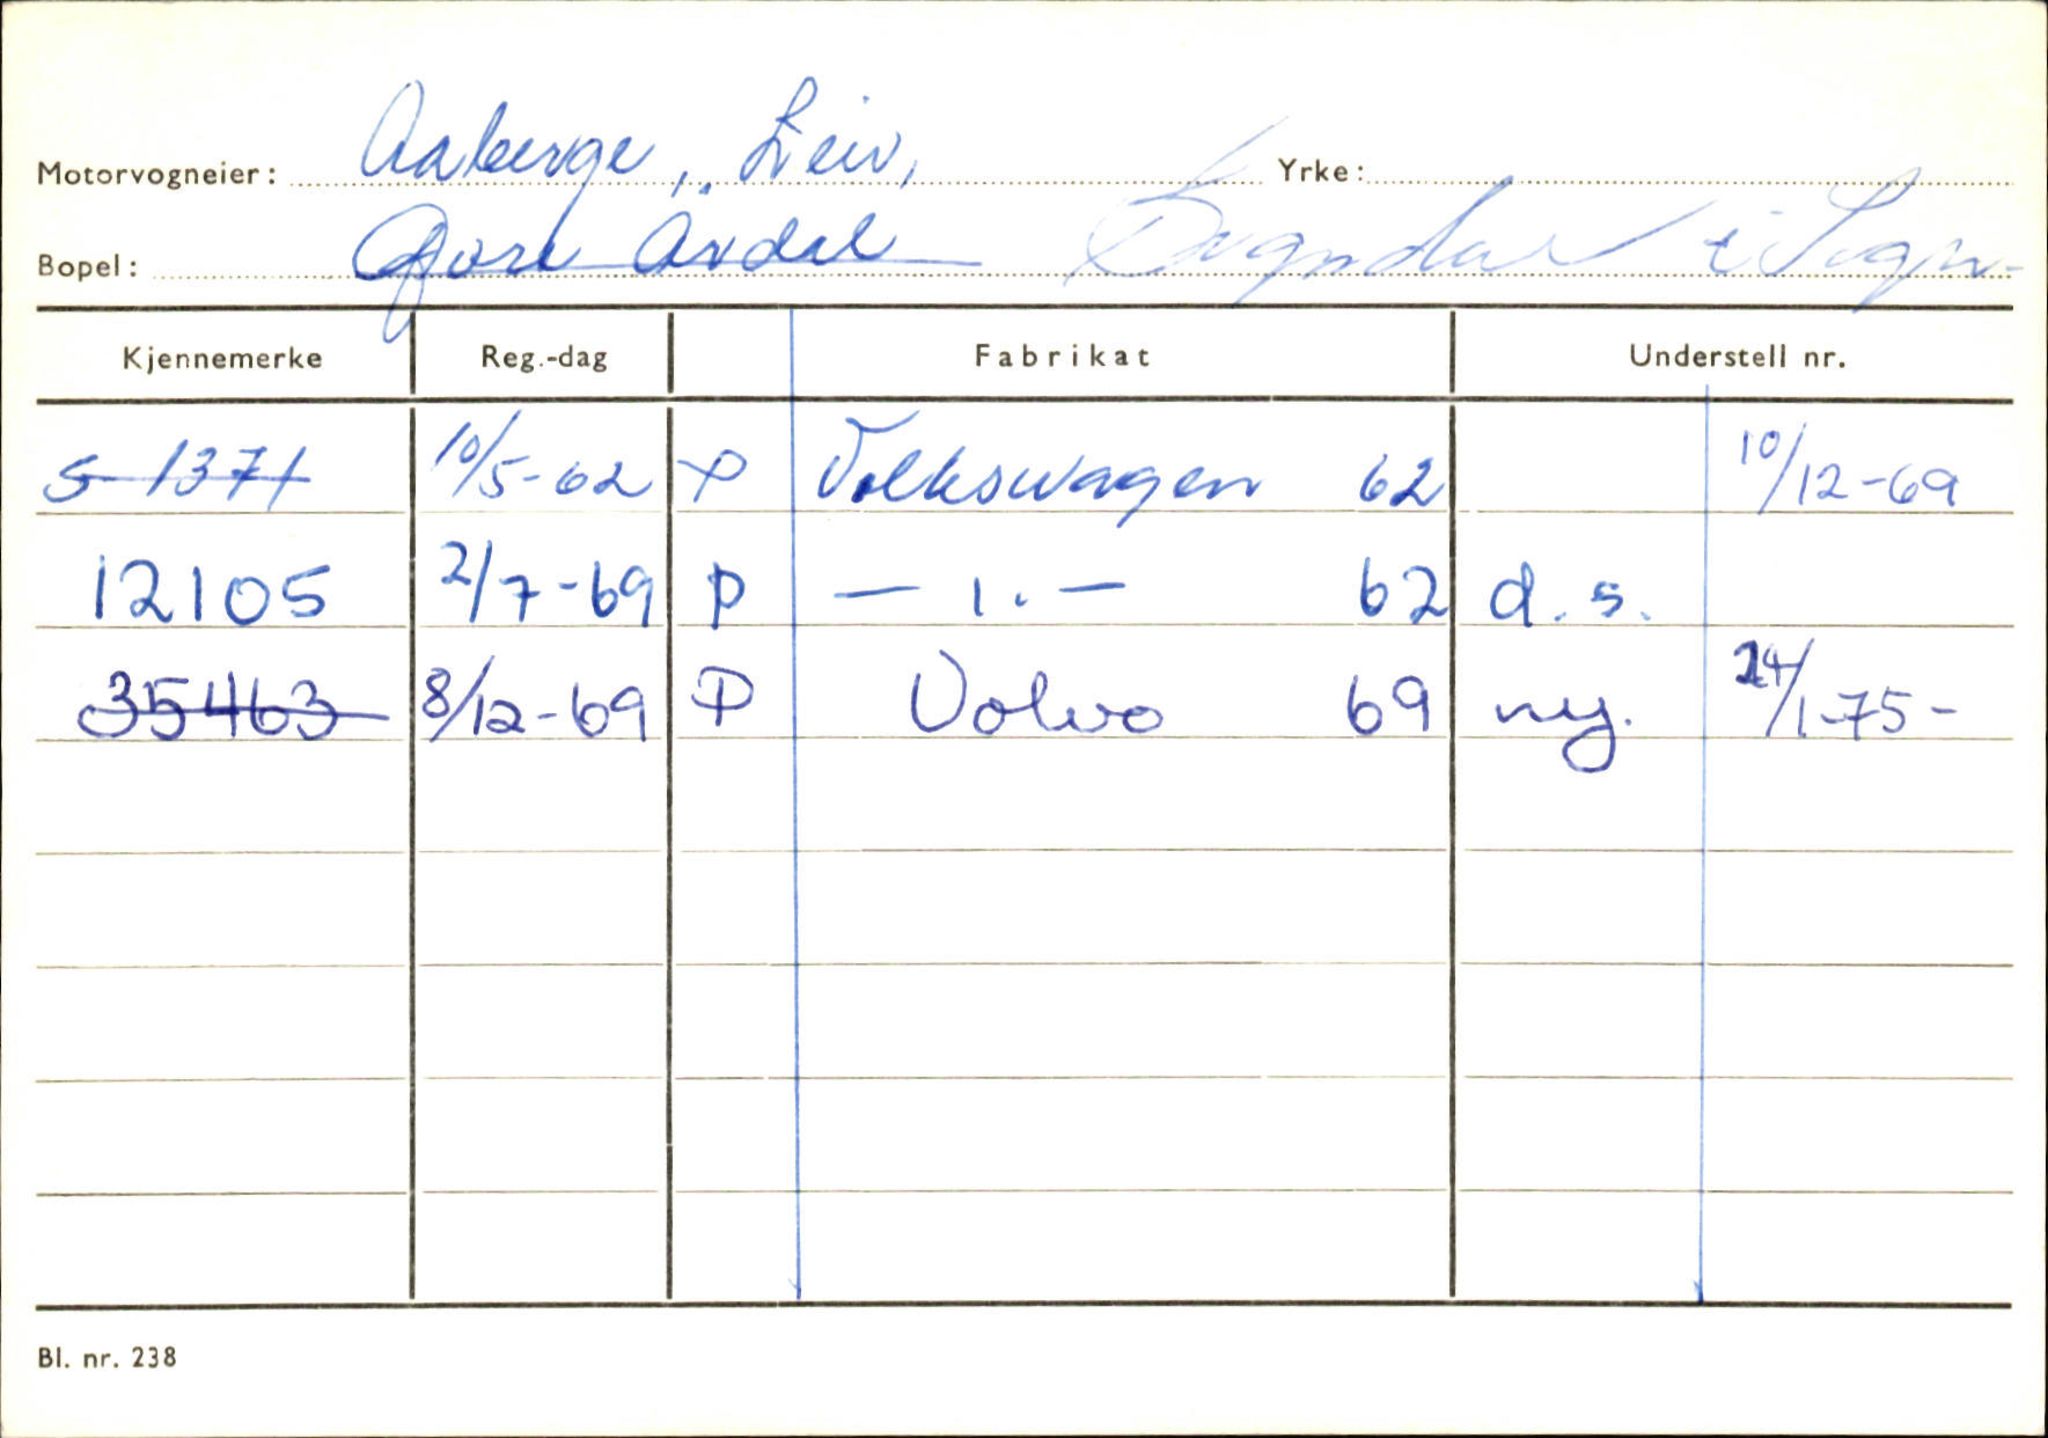 Motorvogneier: Aaberge, Leiv, Yrke:
Bopel: Øvre Årdal Sogndal i Sogn
Kjennemerke Reg.-dag Fabrikat Understell nr.
S-1371 10/5-62 P Volkswagen 62 10/12-69
12105 2/7-69 P — ı. — 62 d. s.
35463 8/12-69 P Volvo 69 ny. 24/1-75-
Bl. nr. 238